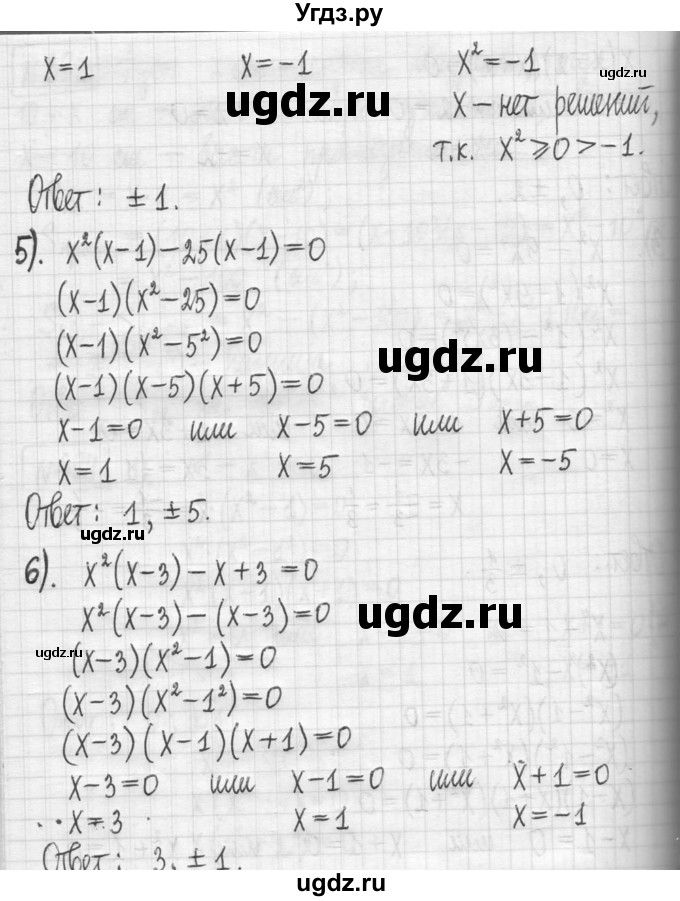 Угдз.ру
x=1 x=-1 x²=-1
ugdz.ru
ugdz.ru
x – нет решений,
т.к. x²⩾0>-1.
Ответ: ±1.
5). x²(x-1)-25(x-1)=0
(x-1)(x²-25)=0
(x-1)(x²-5²)=0
ugdz.ru
(x-1)(x-5)(x+5)=0
x-1=0 или x-5=0 или x+5=0
x=1 x=5 x=-5
Ответ: 1, ±5.
ugdz.ru
6). x²(x-3)-x+3=0
x²(x-3)-(x-3)=0
ugdz.ru
ugdz.ru
(x-3)(x²-1)=0
(x-3)(x²-1²)=0
(x-3)(x-1)(x+1)=0
x-3=0 или x-1=0 или x+1=0
x=3 x=1 x=-1
Ответ: 3, ±1.
ugdz.ru